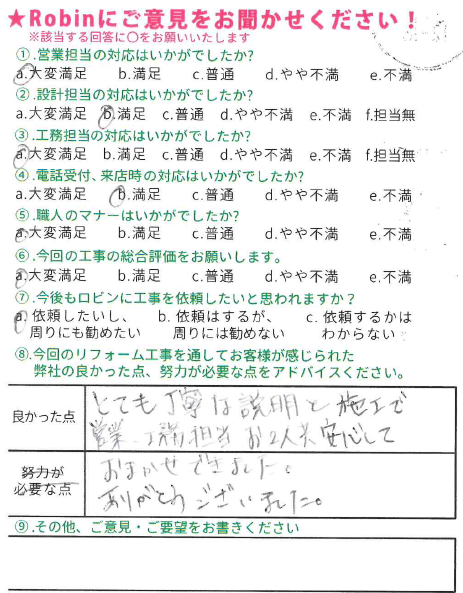 ★Robinにご意見をお聞かせください！
※該当する回答に〇をお願いいたします
①.営業担当の対応はいかがでしたか?
a.大変満足 b.満足 c.普通 d.やや不満 e.不満
②.設計担当の対応はいかがでしたか?
a.大変満足 b.満足 c.普通 d.やや不満 e.不満 f.担当無
③.工務担当の対応はいかがでしたか?
a.大変満足 b.満足 c.普通 d.やや不満 e.不満 f.担当無
④.電話受付、来店時の対応はいかがでしたか?
a.大変満足 b.満足 c.普通 d.やや不満 e.不満
⑤.職人のマナーはいかがでしたか?
a.大変満足 b.満足 c.普通 d.やや不満 e.不満
⑥.今回の工事の総合評価をお願いします。
a.大変満足 b.満足 c.普通 d.やや不満 e.不満
⑦.今後もロビンに工事を依頼したいと思われますか？
a. 依頼したいし、 b. 依頼はするが、 c. 依頼するかは
周りにも勧めたい 周りには勧めない わからない
⑧.今回のリフォーム工事を通してお客様が感じられた
弊社の良かった点、努力が必要な点をアドバイスください。
良かった点
とても丁寧な説明と施工で
営業、工務担当お2人共安心して
努力が
必要な点
おまかせできました。
ありがとうございました。
⑨.その他、ご意見・ご要望をお書きください